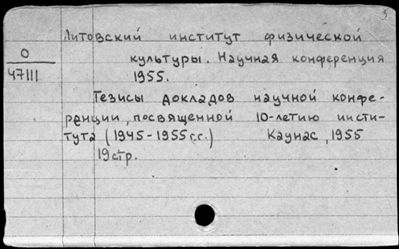 Литовский институт физической
О
47111
культуры. Научная конференция
1955.
Тезисы докладов научной конфе-
ренции, посвященной 10-летию инсти-
тута (1945-1955гг.) Каунас, 1955
19стр.